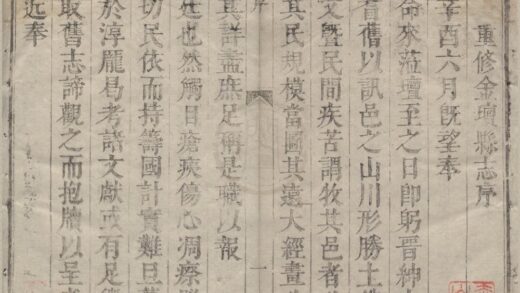 重修金壇縣志序
辛酉六月旣望奉
命來蒞壇至之日卽躬晋紳
耆舊以訊邑之山川形勝土
文曁民間疾苦謂牧其邑者
其民規模當圖其遠大經畫
序
其詳盡庶足稱是職以報
一
廷也然觸日瘡痍傷心凋瘵
切民依而持籌國計實難旦
於淳龎曷考諸文獻或有足
取舊志諦觀之而抱牘以呈
近奉